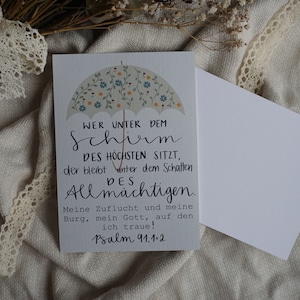 WER UNTER DEM
Schirm
DES HÖCHSTEN SITZT,
der bleibt unter dem Schatten
DES
Allmächtigen.
Meine Zuflucht und meine
Burg, mein Gott, auf den
ich traue!
Psalm 91,1+2